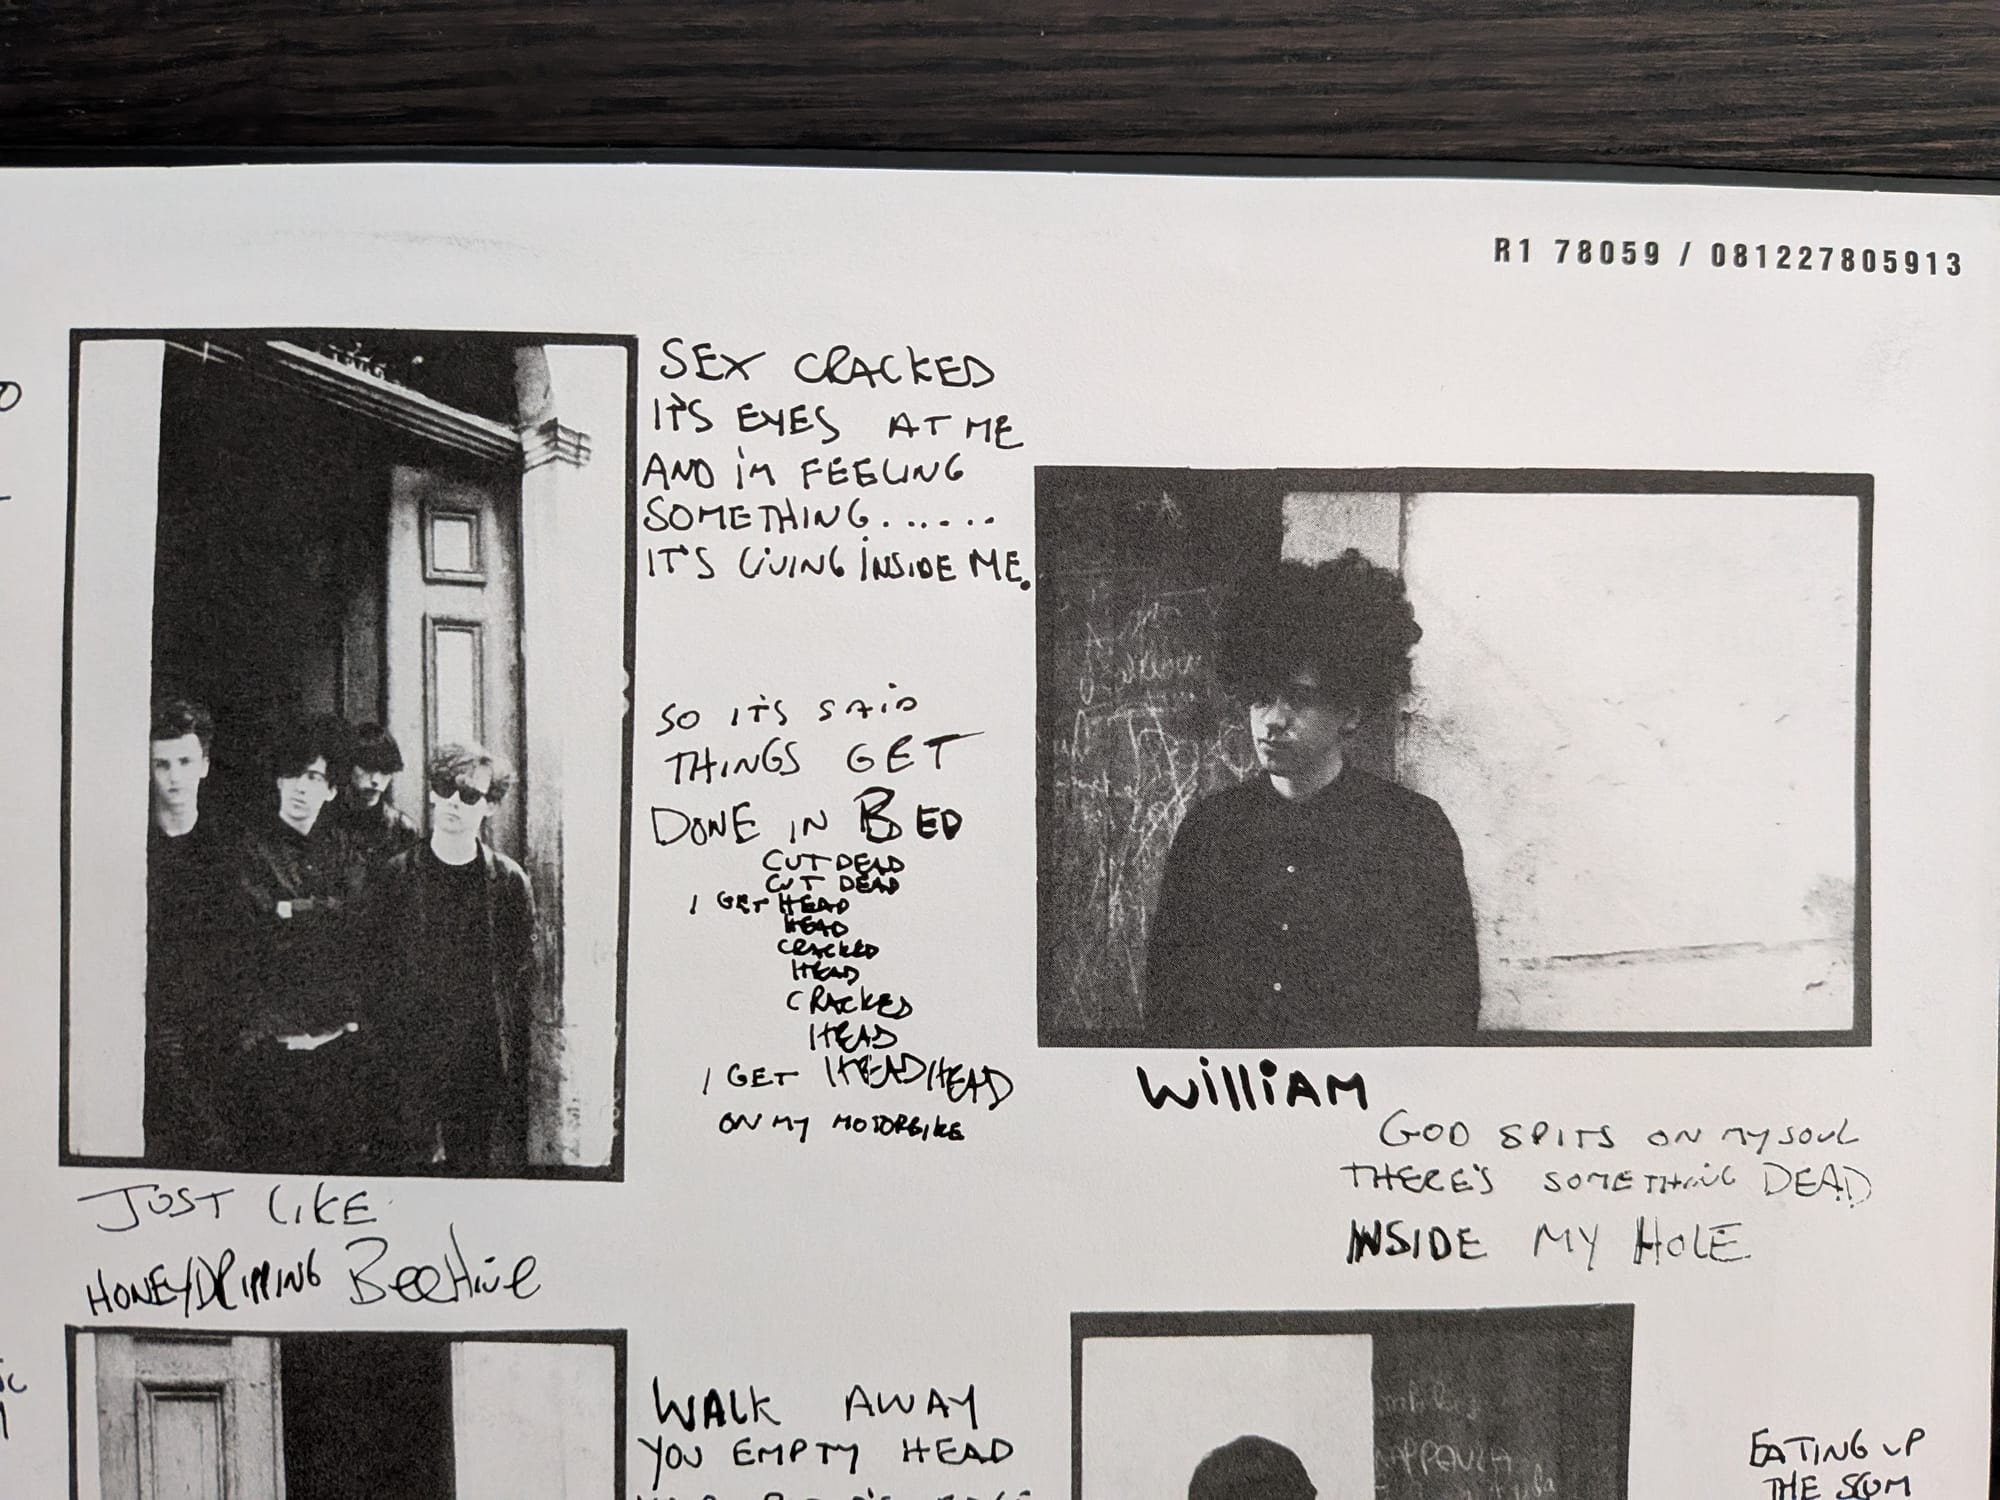 R1 78059 / 081227805913
SEX CRACKED
IT'S EYES AT ME
AND I'M FEELING
SOMETHING......
IT'S LIVING INSIDE ME.
SO IT'S SAID
THINGS GET
DONE IN BED
CUT DEAD
CUT DEAD
I GET HEAD
HEAD
CRACKED
HEAD
CRACKED
HEAD
I GET HEAD HEAD
ON MY MOTORBIKE
JUST LIKE
HONEYDRIPPING BeeHive
WilliAM
GOD SPITS ON MY SOUL
THERE'S SOMETHING DEAD
INSIDE MY HOLE
WALK AWAY
YOU EMPTY HEAD
EATING UP
THE SCUM